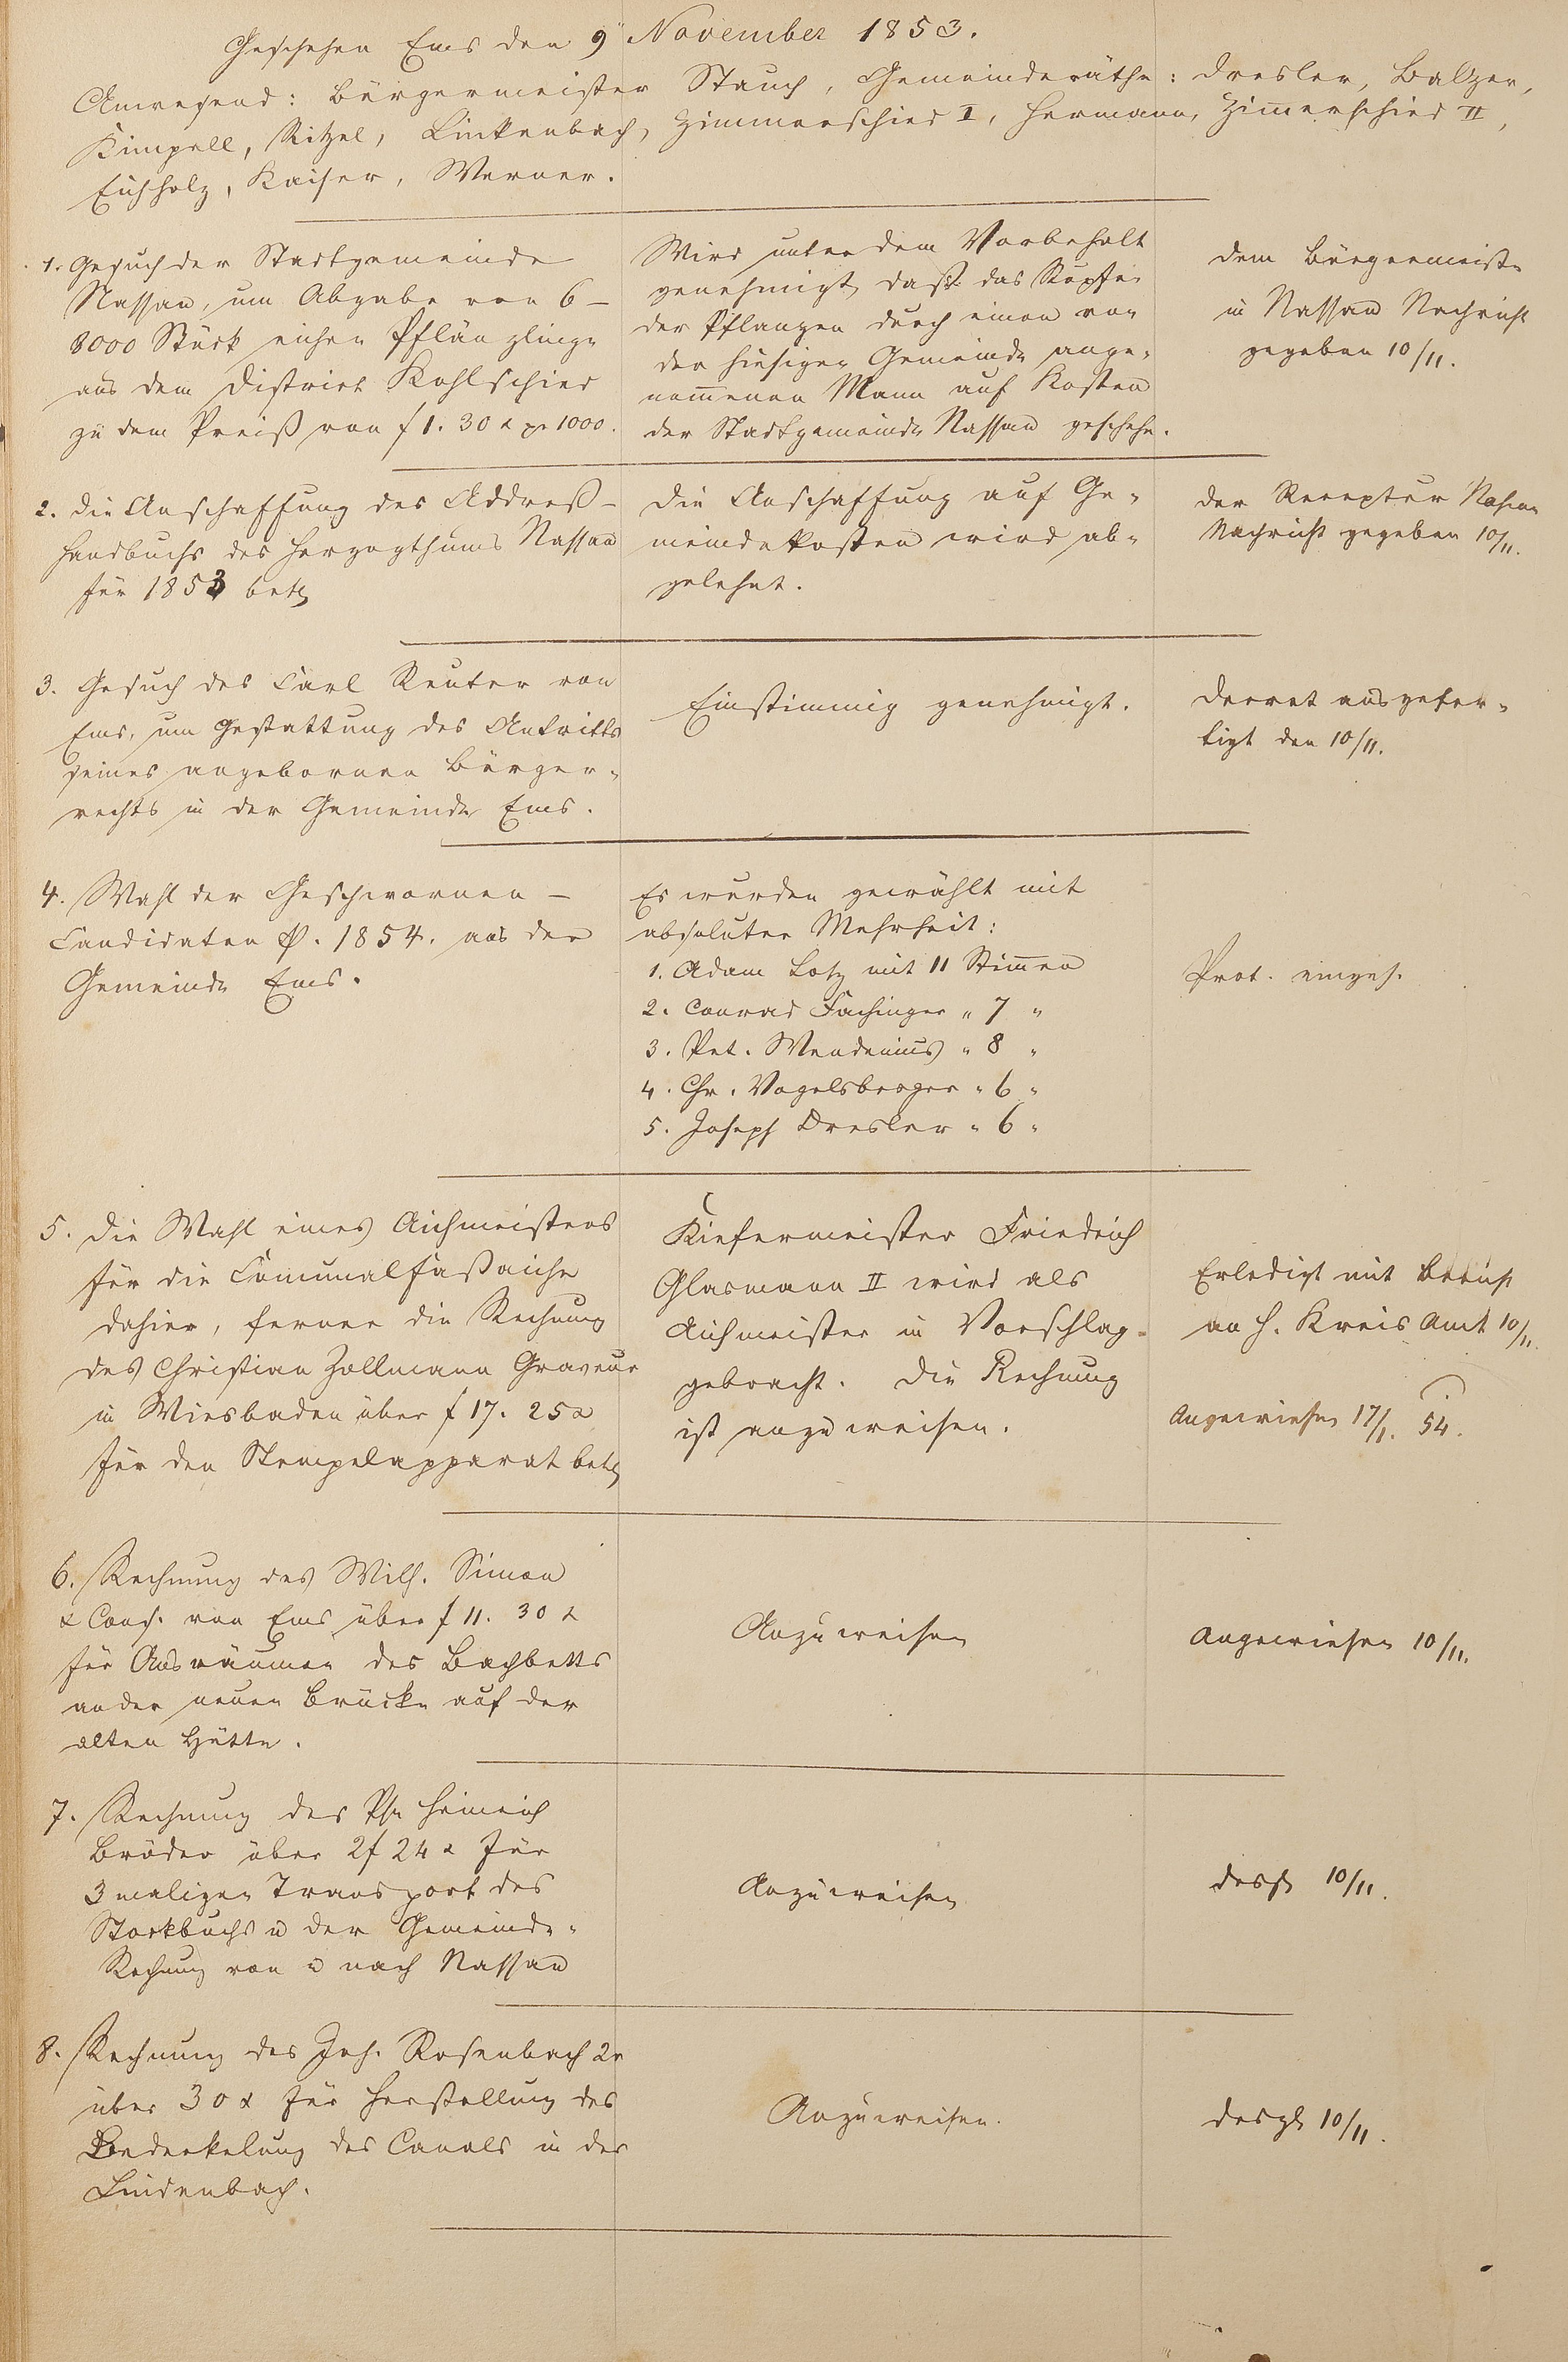 Geschehen Ems den 9 November 1853.
Anwesend: Bürgermeister Stauch, Gemeinderäthe: Dresler, Balzer,
Kimpell, Ritzel, Linkenbach, Zimmerschied I, Hermann, Zimerschied II,
Eichholz, Kaiser, Werner.
1. Gesuch der Stadtgemeinde
Nassau, um Abgabe von 6-
8000 Stück eichen Pflänzlinge
aus dem District Kohlschied
zu dem Preiß von f 1. 30 x pr 1000.
Wird unter dem Vorbehalt
genehmigt, daß das
der Pflanzen durch einen von
der hiesigen Gemeinde ange-
nom̄enen Mann auf Kosten
der Stadtgemeinde Nassau geschehe.
Dem Bürgermeister
in Nassau Nachricht
gegeben 10/11.
2. Die Anschaffung des Addreß-
handbuchs des Herzogthums Nassau
für 1853 betr
Die Anschaffung auf Ge-
meindekosten wird ab-
gelehnt.
Der Receptur Nassau
Nachricht gegeben 10/11.
3. Gesuch des Carl Reuter von
Ems, um Gestattung des Antritts
seines angebornen Bürger-
rechts in der Gemeinde Ems.
Einstimmig genehmigt.
Decret ausgefer-
tigt den 10/11.
4. Wahl der Geschwornen-
Candidaten p. 1854. aus der
Gemeinde Ems.
Es wurden gewählt mit
absoluter Mehrheit:
1. Adam Lotz mit 11 Stim̄en
2. Conrad Fachinger " 7 "
3. Pet. Wendenius " 8 "
4. Chr. Vogelsberger " 6 "
5. Joseph Dresler " 6 "
Prot. einges.
5. Die Wahl eines Aichmeisters
für die Com̄unalfaßaiche
dahier, ferner die Rechnung
des Christian Zollmann Graveur
in Wiesbaden über f 17. 25 x
für den Stempelapparat betr
Kiefermeister Friedrich
Glasmann II wird als
Aichmeister in Vorschlag
gebracht. Die Rechnung
ist anzuweisen.
Erledigt mit Bericht
an H. Kreis Amt 10/11.
Angewiesen 17/1. 54.
6. Rechnung des Wilh. Simon
& Cons. von Ems über f 11. 30 x
für Ausräumen des Bachbetts
an der neuen Brücke auf der
alten Hütte.
Anzuweisen
Angewiesen 10/11.
7. Rechnung des Ph. Heinrich
Bröder über 2 f 24 x für
3 maligen Transport des
Stockbuchs u der Gemeinde-
Rechnung von u nach Nassau
Anzuweisen
desgl 10/11.
8. Rechnung des Joh. Rosenbach 2r
über 30 x für Herstellung der
Bedeckelung des Canals in der
Lindenbach.
Anzuweisen.
desgl 10/11.